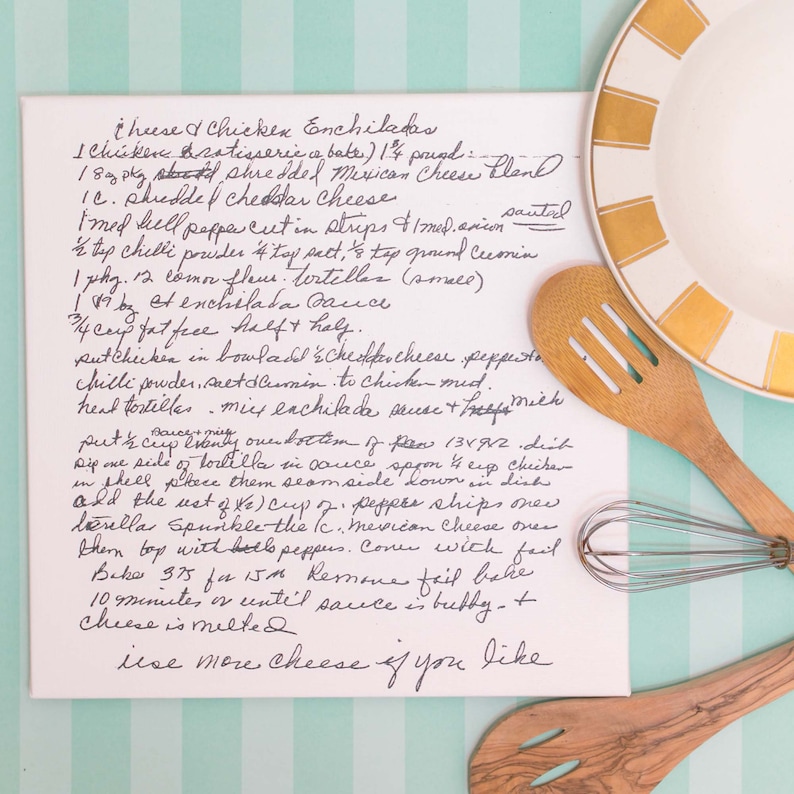 Cheese & Chicken Enchiladas
1 Chicken rotisserie or bake) 1 3/4 pound.
1 8 oz pkg shredded Mexican Cheese blend
1 c. shredded cheddar cheese
1 med bell pepper cut in strips & 1 med. onion sauted
1/2 tsp chilli powder 1/4 tsp salt, 1/8 tsp ground cumin
1 pkg. 12 corn or flour tortillas (small)
1 19 oz enchilada sauce
3/4 cup fat free half & half.
put chicken in bowl add 1/2 cheddar cheese. pepper &
chilli powder. salt & cumin to chicken med.
heat tortillas. mix enchilada sauce & half milk
put 1/2 cup sauce & milk evenly over bottom of pan 13x9x2. dish
Dip one side of tortilla in sauce spoon 1/4 cup chicken
in shell place them seam side down in dish
add the rest of (1/2) cup of. pepper strips over
tortilla Sprinkle the 1c. Mexican cheese over
them top with peppers. Cover with foil
Bake 375 for 15 m Remove foil bake
10 minutes or until sauce is bubby. &
cheese is melted
use more cheese if you like